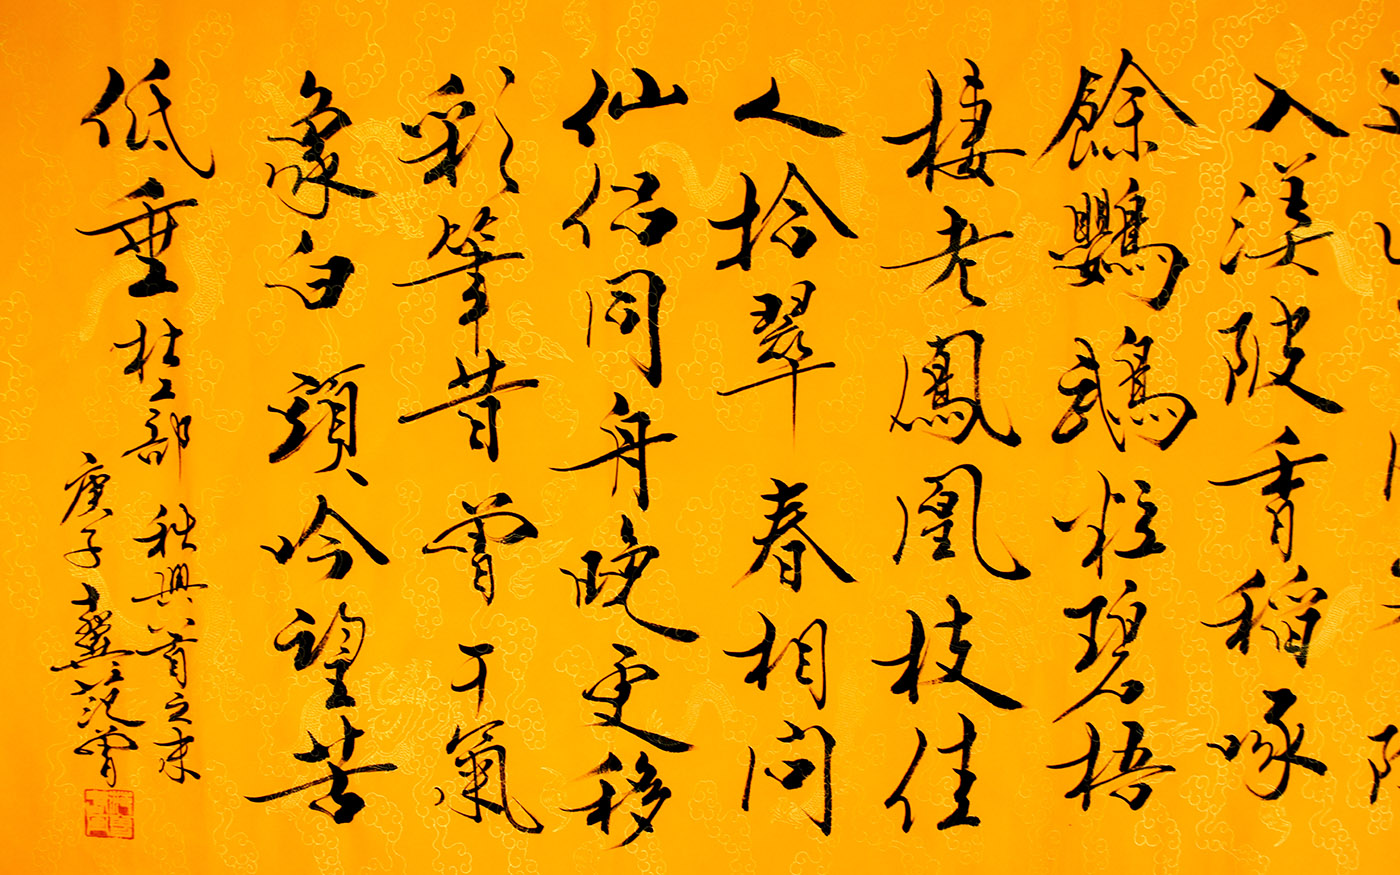 入渼陂香稻啄
餘鸚鵡粒碧梧
棲老鳳凰枝佳
人拾翠春相問
仙侶同舟晚更移
彩筆昔曾干氣
象白頭吟望苦
低垂 杜工部秋興八首之末
庚子十翼范曾